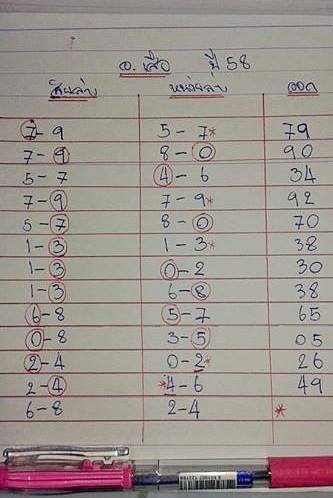 อ. เสือ ปี 58
สิบล่าง หน่วยล่าง ออก
7-9 5-7* 79
7-9 8-0 90
5-7 4-6 34
7-9 7-9* 92
5-7 8-0 70
1-3 1-3* 38
1-3 0-2 30
1-3 6-8 38
6-8 5-7 65
0-8 3-5 05
2-4 0-2* 26
2-4 *4-6 49
6-8 2-4 *